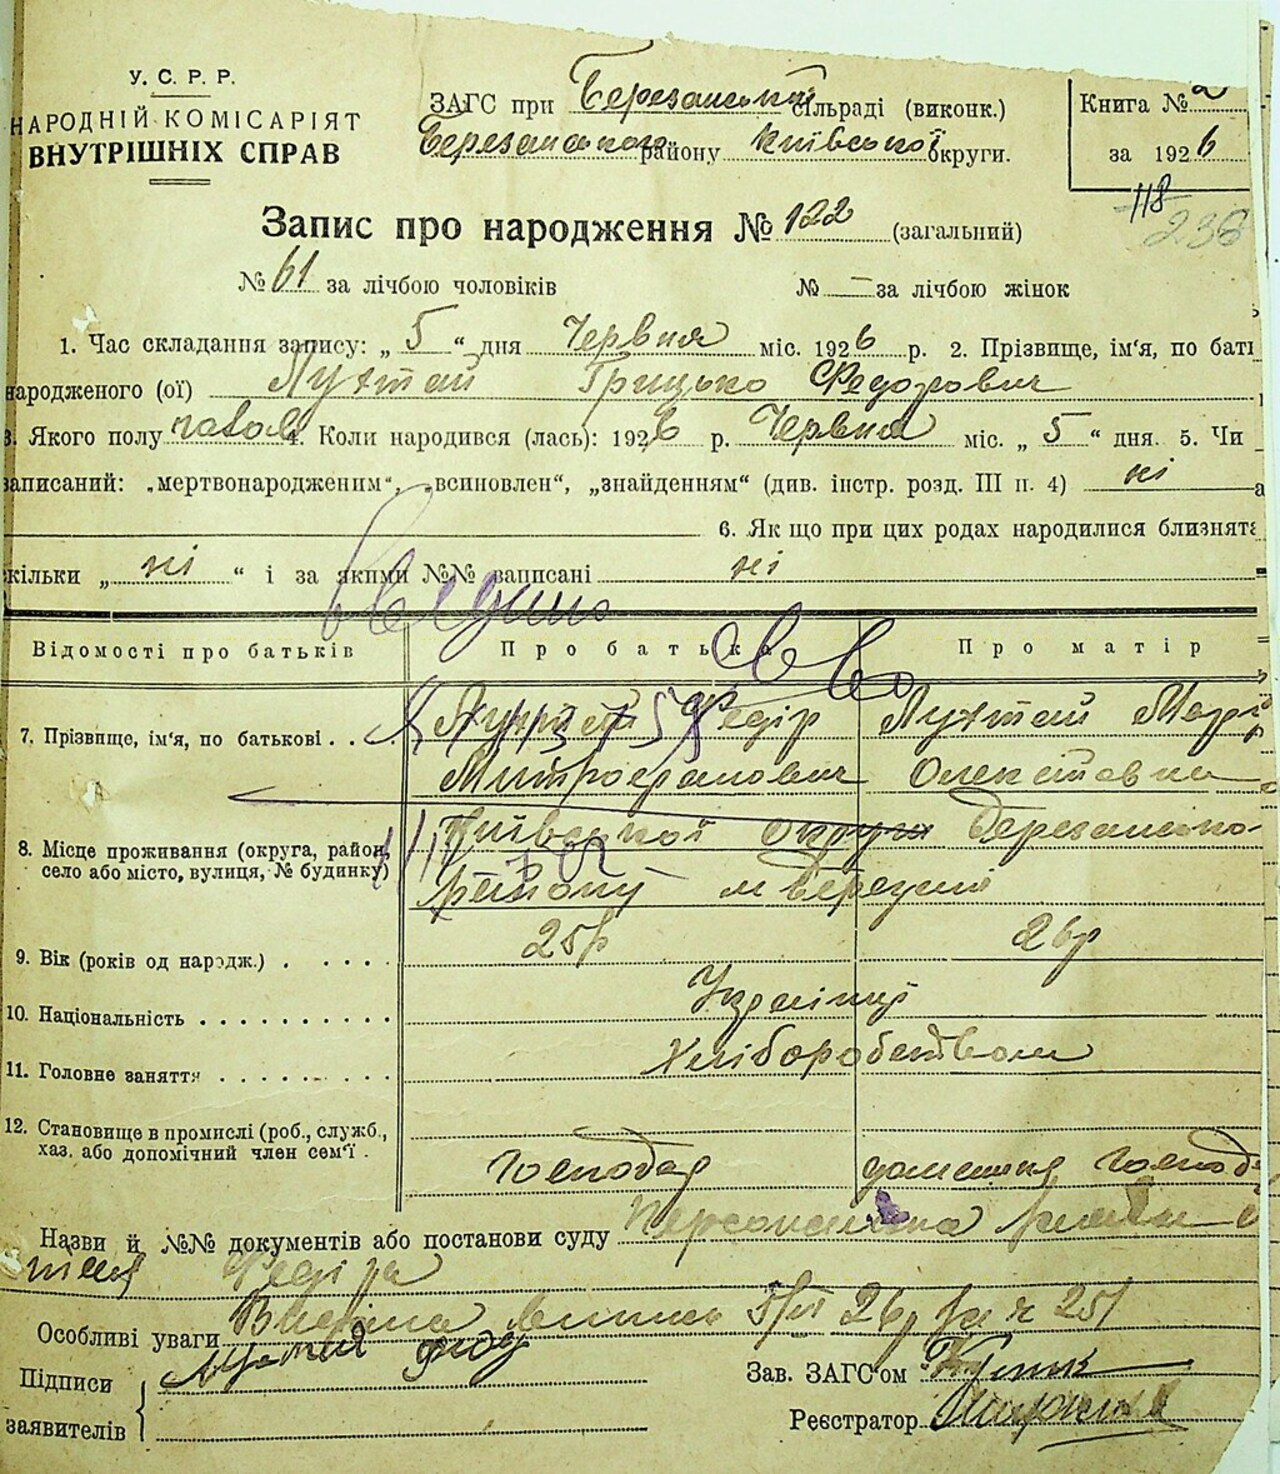 У. С. Р. Р.
НАРОДНІЙ КОМІСАРІЯТ
ВНУТРІШНІХ СПРАВ
ЗАГС при Березанській сільраді (виконк.)
Березанського району Київської округи.
Книга № 2
за 1926
118
238
Запис про народження № 122 (загальний)
№ 61 за лічбою чоловіків № — за лічбою жінок
1. Час складання запису: „ 5 “ дня Червня міс. 1926 р. 2. Прізвище, ім'я, по баті
народженого (ої) Лухтай Грицько Федорович
3. Якого полу чолов 4. Коли народився (лась): 1926 р. Червня міс. „ 5 “ дня. 5. Чи
записаний: „мертвонародженим“, „всиновлен“, „знайденням“ (див. інстр. розд. III п. 4) ні
6. Як що при цих родах народилися близнята
кільки „ ні “ і за якими №№ записані ні
Відомості про батьків Про батька Про матір
7. Прізвище, ім'я, по батькові . . . Лухтай Федір Лухтай Марі
Митрофанович Олексіївна
8. Місце проживання (округа, район, село або місто, вулиця, № будинку) Київської округи Березансько-
району м Березані
9. Вік (років од нарэдж.) . . . . . 25р 26р
10. Національність . . . . . . . . . . Українці
11. Головне заняття . . . . . . . . Хліборобством
12. Становище в промислі (роб., служб.,
хаз. або допомічний член сем'ї . Господар домашня господ
Назви й №№ документів або постанови суду Персональна
Федіра
Особливі уваги 26р за ч 251
Підписи
заявителів
Зав. ЗАГС'ом
Реєстратор